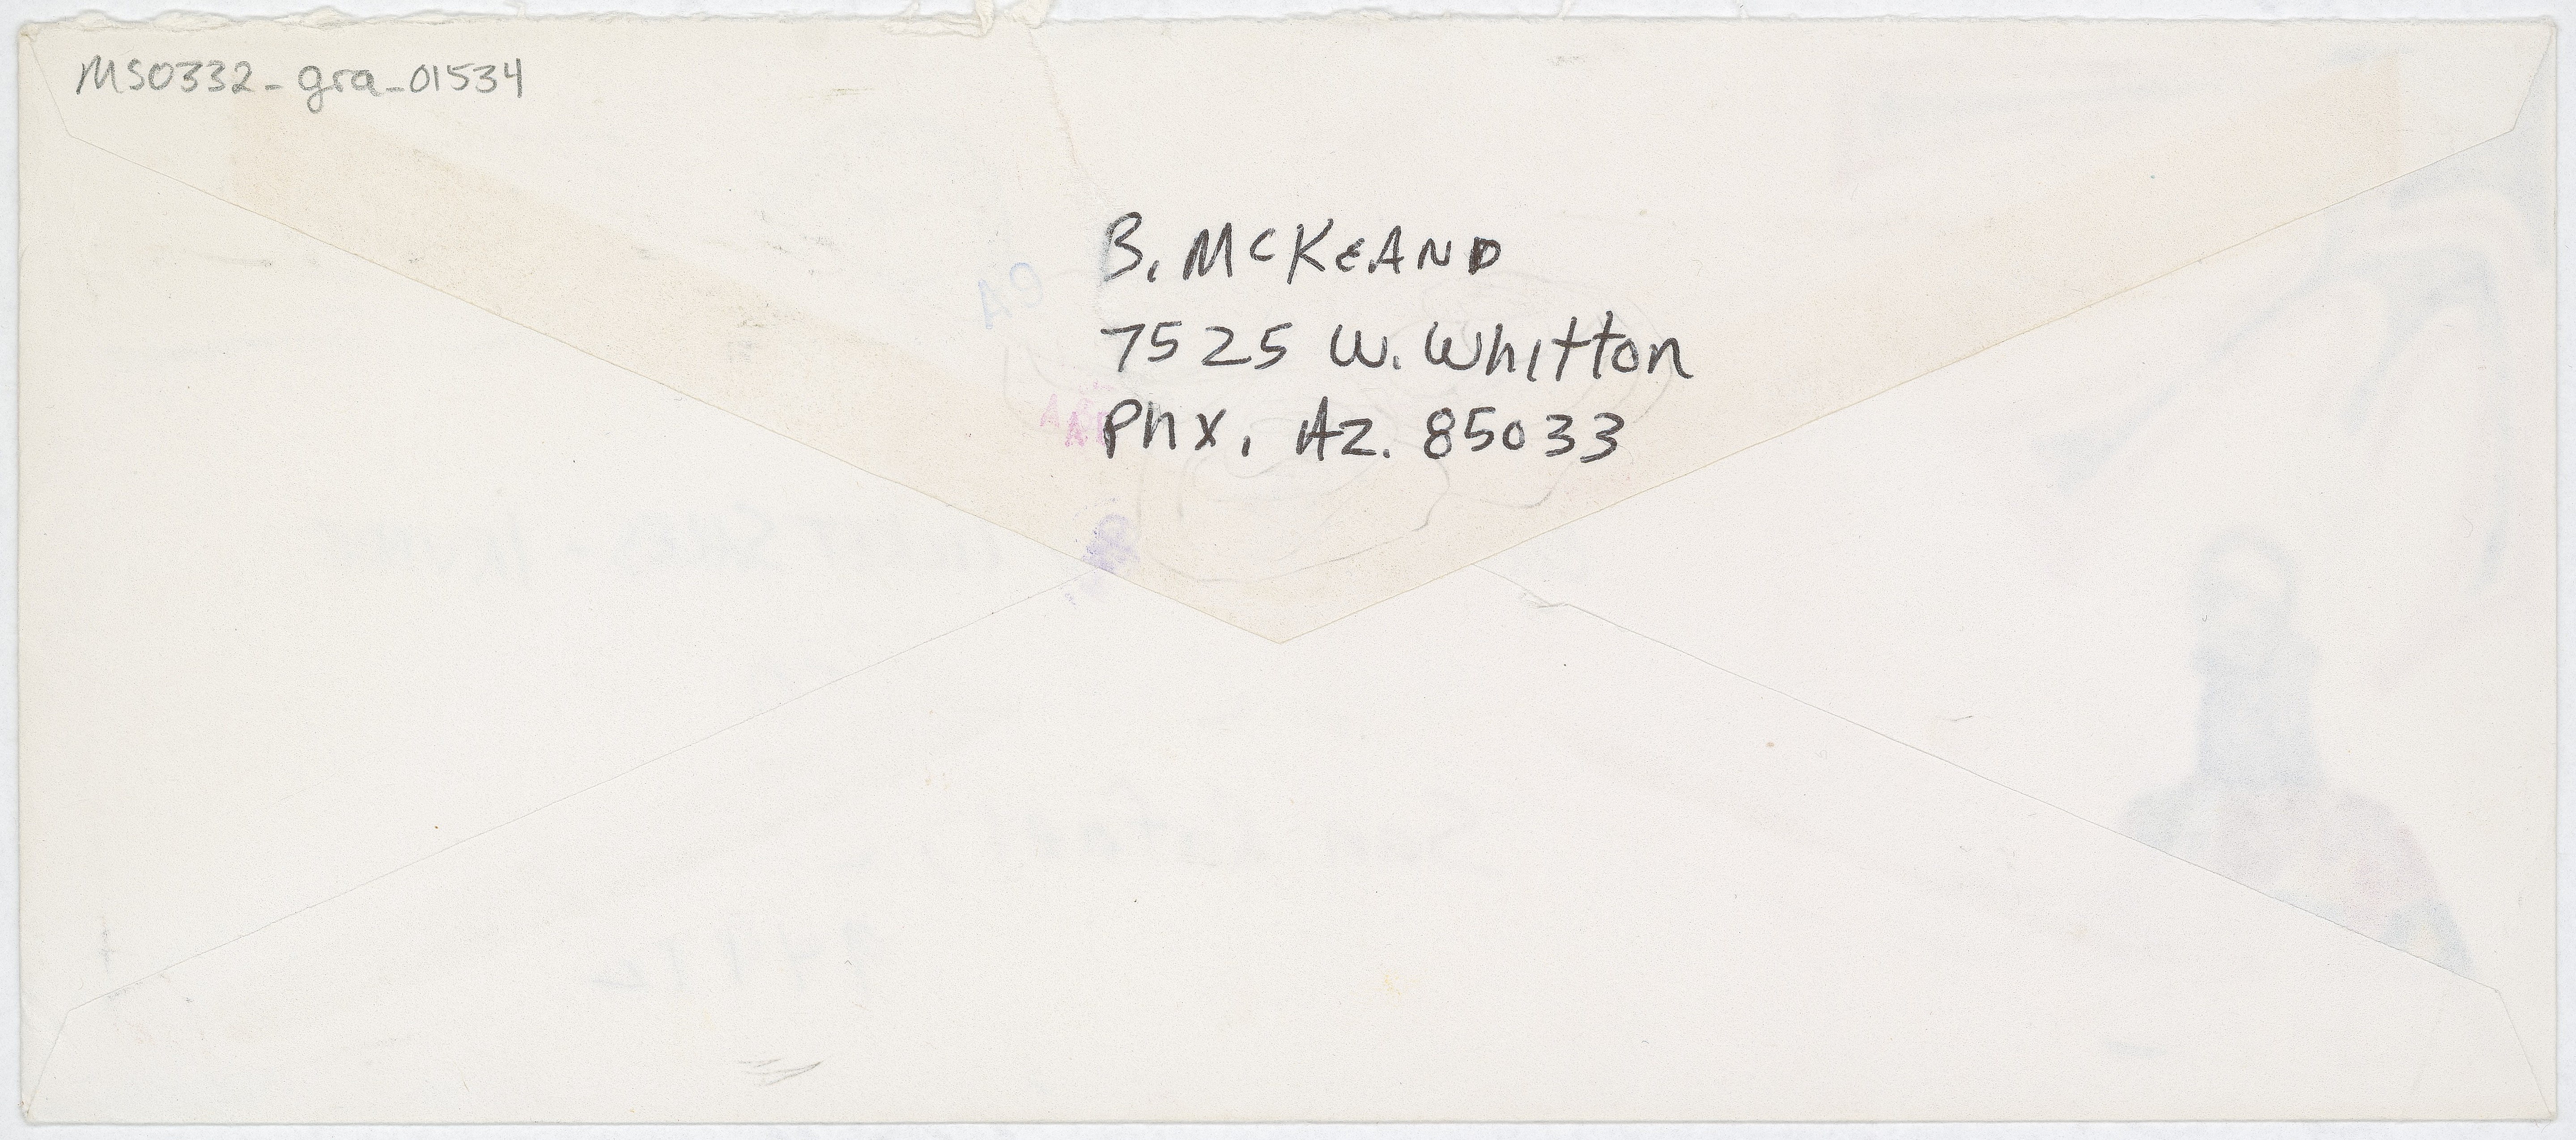 MS0332-gra-01534
B. McKeAND
7525 W. Whitton
Phx, Az. 85033